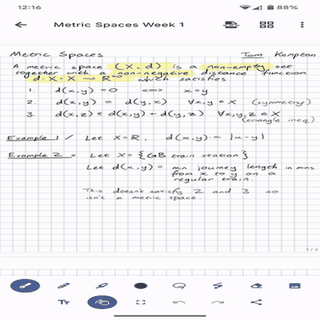 12:16
88%
Metric Spaces Week 1
Metric Spaces Tom Kempton
A metric space (X, d) is a non-empty set
together with a non-negative distance function
d: X × X → R≥0 which satisfies
1. d(x,y) = 0 <=> x=y
2. d(x,y) = d(y,x) ∀x,y ∈ X (symmetry)
3. d(x,z) ≤ d(x,y) + d(y,z) ∀x,y,z ∈ X
(triangle ineq)
Example 1 / Let X=R, d(x,y) = |x-y|
Example 2 - Let X = {GB train station}
Let d(x,y) = min journey length in mins
from x to y on a
regular train
This doesn't satisfy 2 and 3 so
isn't a metric space
Tr